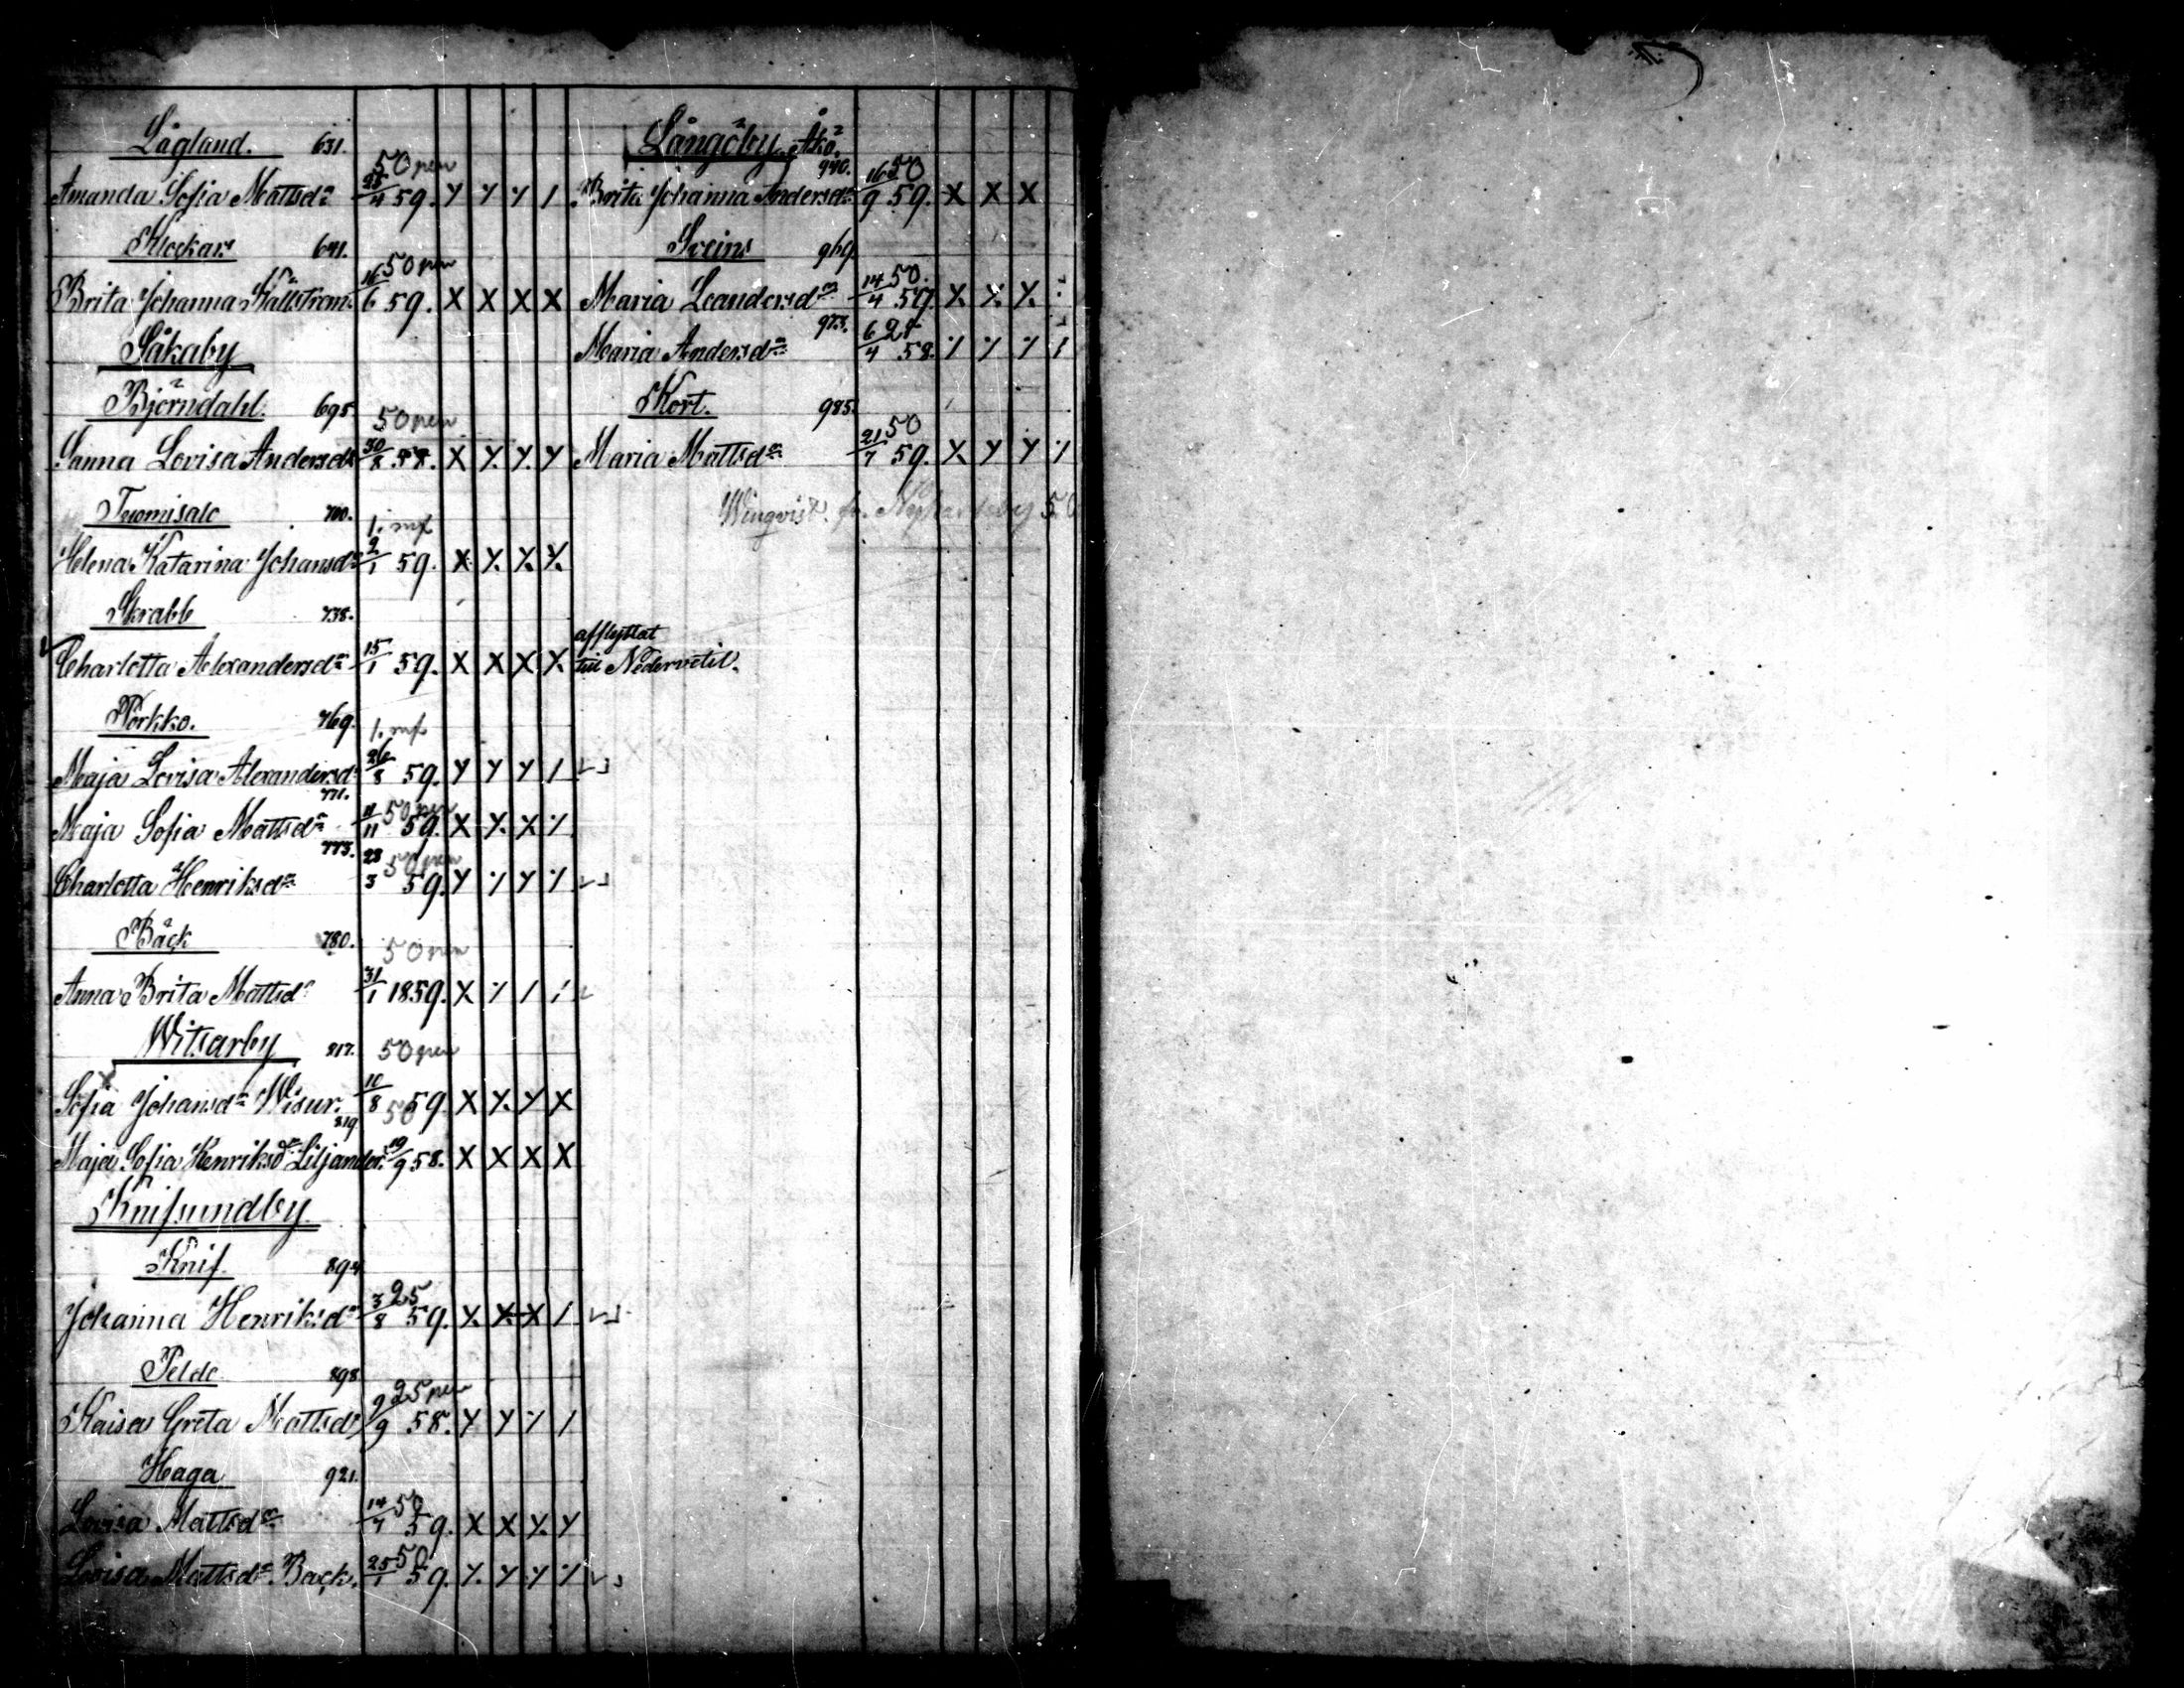 Lågland. 631.
50 pen
Amanda Sofia Mattsdr 23/4 59. Y Y Y /
Klockars 641.
50 pen
Brita Johanna Källström. 16/6 59. X X X X
Såkaby
Björndahl. 695
50 pen
Sanna Lovisa Andersdr 30/8 58. X Y. Y. Y
Tuomisalo 700.
1. mk
Helena Katarina Johansdr 2/1 59. X Y. Y. Y.
Skrabb 738.
Charlotta Alexandersdr 15/1 59. X X X X afflyttat till Nedervetil.
Pörkko. 769.
1. mk
Maja Lovisa Alexandersdr 26/8 59. Y Y Y /
771.
50 pen
Maja Sofia Mattsdr 11/11 59. X Y. X /
775.
50 pen
Charlotta Henriksdr 23/3 59. Y / Y /
Bäck 780.
50 pen
Anna Brita Mattsdr 31/1 1859. X / / /
Witsarby 817. 50 pen
Sofia Johansdr Wisur. 10/8 59. X Y. Y X
819 50
Maja Sofia Henriksdr Liljander. 19/9 58. X X X X
Knifsundby.
Knif. 894
25
Johanna Henriksdr 3/8 59. X. X X /
Peldo 898
25 pen
Kaisa Greta Mattsdr 9/9 58. Y Y / /
Haga 921.
50
Lovisa Mattsdr 14/7 59. X X Y. Y
50
Lovisa Mattsdr Back. 25/1 59. Y. Y Y /
Långöby, Åkö.
940. 50
Brita Johanna Andersdr 16/9 59. X X X
Sveins 969
50.
Maria Leandersdr 14/4 59. X. X. X.
973. 25
Maria Andersdr 6/4 58. / / / /
Kort. 985.
50
Maria Mattsdr 21/7 59. X. Y Y /
Winqvist. fr. 50